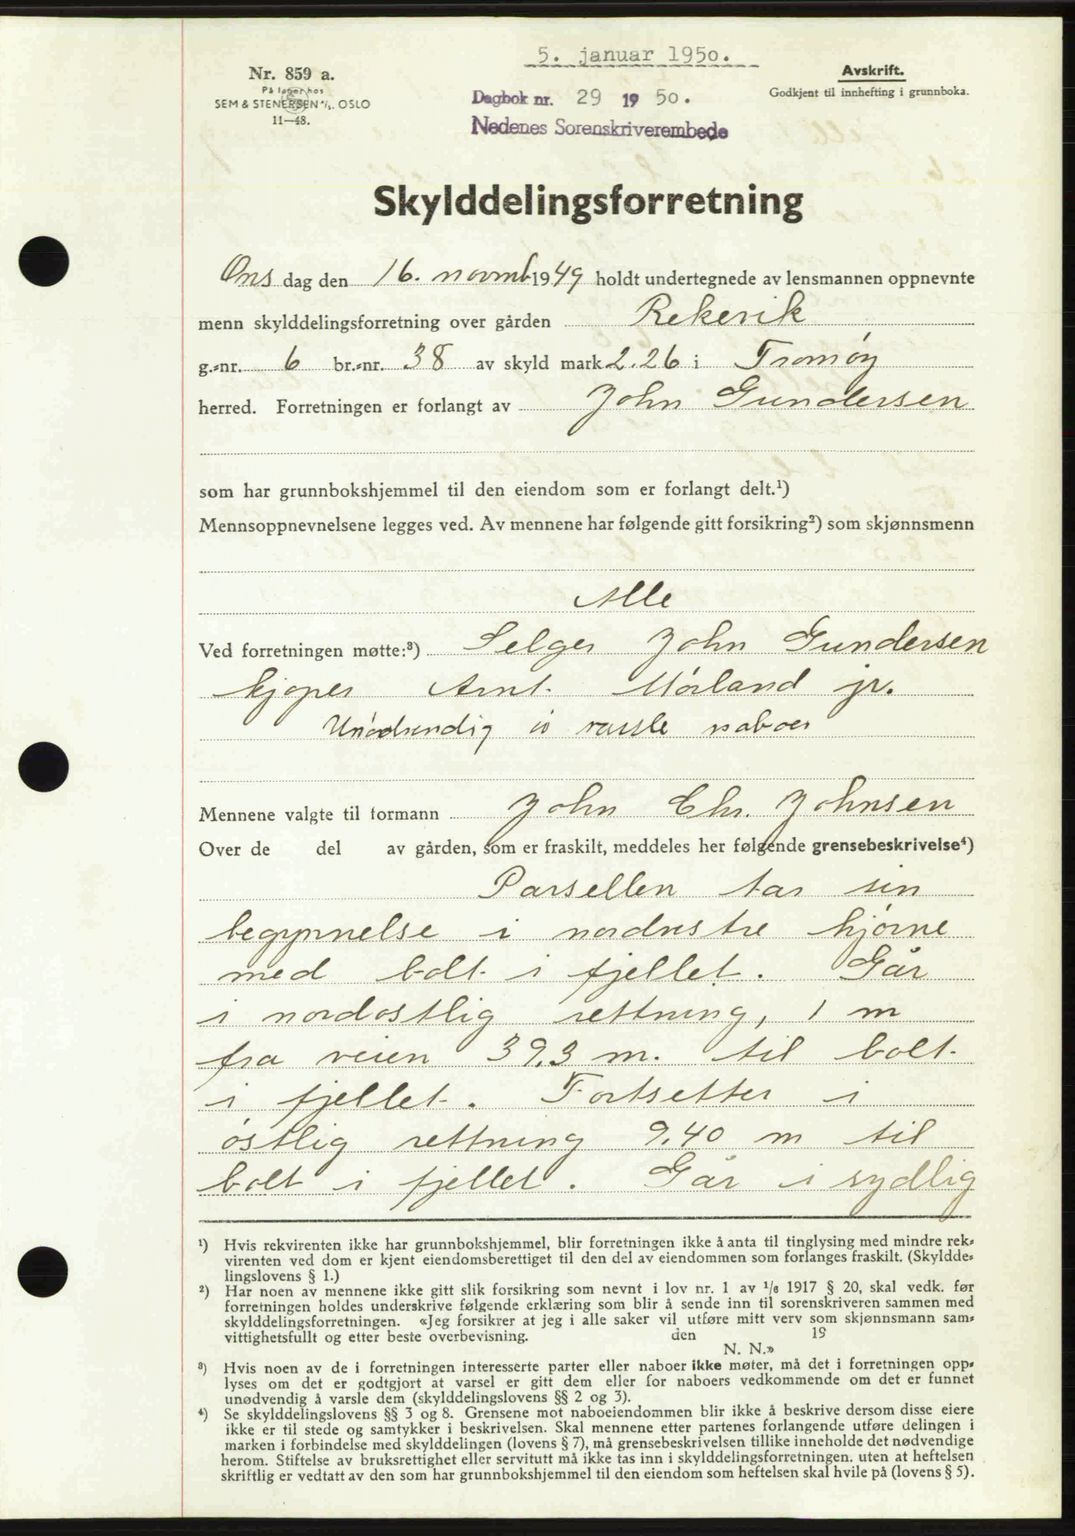 5. januar 1950.
Nr. 859 a.
På lager hos
SEM & STENERSEN A/S. OSLO
11—48.
Avskrift.
Godkjent til innhefting i grunnboka.
Dagbok nr. 29 1950.
Nedenes Sorenskriverembede
Skylddelingsforretning
Ons dag den 16. novmb. 1949 holdt undertegnede av lensmannen oppnevnte
menn skylddelingsforretning over gården Rekevik
g.-nr. 6 br.-nr. 38 av skyld mark 2.26 i Tromøy
herred. Forretningen er forlangt av John Gundersen
som har grunnbokshjemmel til den eiendom som er forlangt delt.¹)
Mennsoppnevnelsene legges ved. Av mennene har følgende gitt forsikring²) som skjønnsmenn
Alle
Ved forretningen møtte:³) Selger John Gundersen
kjøper Arnt Mørland jr.
Unødvendig å varsle naboer
Mennene valgte til formann John Chr. Johnsen
Over de del av gården, som er fraskilt, meddeles her følgende grensebeskrivelse⁴)
Parsellen tar sin
begynnelse i nordvestre hjørne
med bolt i fjellet. Går
i nordostlig rettning, 1 m
fra veien 39.3 m. til bolt
i fjellet. Fortsetter i
østlig rettning 9.40 m til
bolt i fjellet. Går i sydlig
¹) Hvis rekvirenten ikke har grunnbokshjemmel, blir forretningen ikke å anta til tinglysing med mindre rek-
virenten ved dom er kjent eiendomsberettiget til den del av eiendommen som forlanges fraskilt. (Skyldde-
lingslovens § 1.)
²) Har noen av mennene ikke gitt slik forsikring som nevnt i lov nr. 1 av 1/6 1917 § 20, skal vedk. før
forretningen holdes underskrive følgende erklæring som blir å sende inn til sorenskriveren sammen med
skylddelingsforretningen. «Jeg forsikrer at jeg i alle saker vil utføre mitt verv som skjønnsmann sam-
vittighetsfullt og etter beste overbevisning. den 19
N. N.»
³) Hvis noen av de i forretningen interesserte parter eller naboer ikke møter, må det i forretningen opp-
lyses om det er godtgjort at varsel er gitt dem eller for naboers vedkommende om det er funnet
unødvendig å varsle dem (skylddelingslovens §§ 2 og 3).
⁴) Se skylddelingslovens §§ 3 og 8. Grensene mot naboeiendommen blir ikke å beskrive dersom disse eiere
ikke er til stede og samtykker i beskrivelsen. Skal mennene etter partenes forlangende utføre delingen i
marken i forbindelse med skylddelingen (lovens § 7), må grensebeskrivelsen tillike inneholde det nødvendige
herom. Stiftelse av bruksrettighet eller servitutt må ikke tas inn i skylddelingsforretningen. uten at heftelsen
skriftlig er vedtatt av den som har grunnbokshjemmel til den eiendom som heftelsen skal hvile på (lovens § 5).